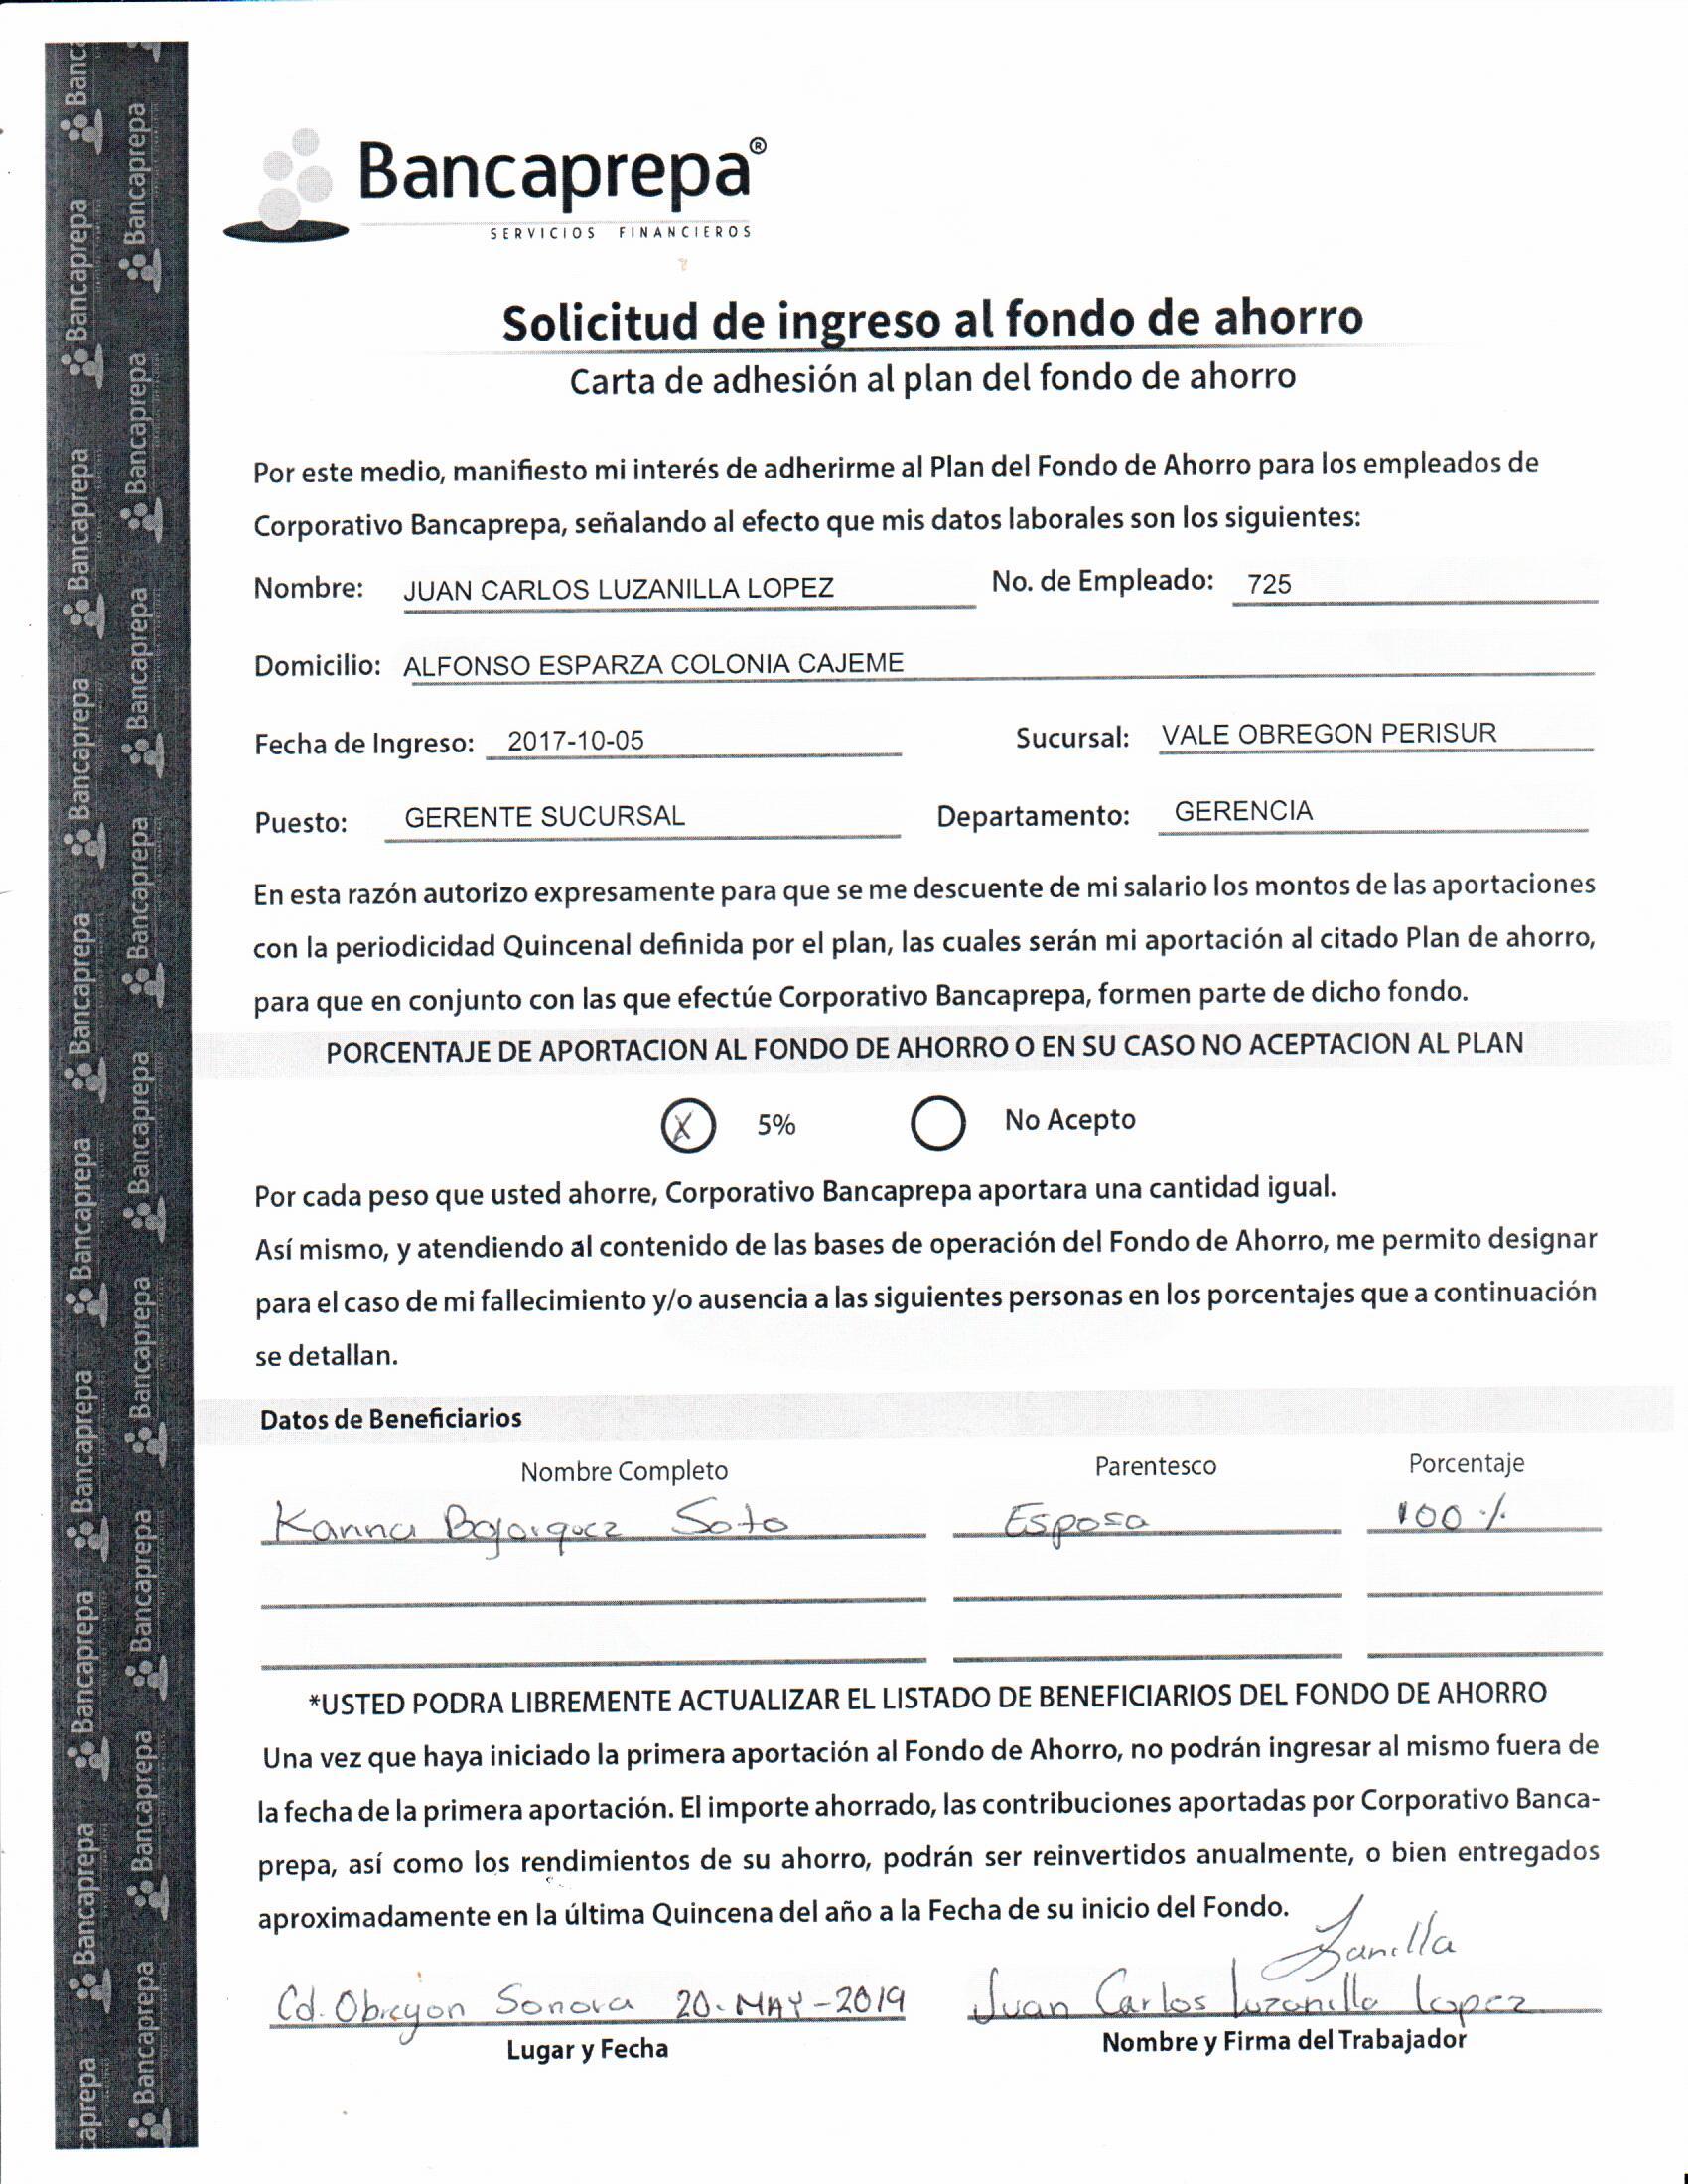 Bancaprepa®
SERVICIOS FINANCIEROS
Solicitud de ingreso al fondo de ahorro
Carta de adhesión al plan del fondo de ahorro
Por este medio, manifiesto mi interés de adherirme al Plan del Fondo de Ahorro para los empleados de
Corporativo Bancaprepa, señalando al efecto que mis datos laborales son los siguientes:
Nombre: JUAN CARLOS LUZANILLA LOPEZ No. de Empleado: 725
Domicilio: ALFONSO ESPARZA COLONIA CAJEME
Fecha de Ingreso: 2017-10-05 Sucursal: VALE OBREGON PERISUR
Puesto: GERENTE SUCURSAL Departamento: GERENCIA
En esta razón autorizo expresamente para que se me descuente de mi salario los montos de las aportaciones
con la periodicidad Quincenal definida por el plan, las cuales serán mi aportación al citado Plan de ahorro,
para que en conjunto con las que efectúe Corporativo Bancaprepa, formen parte de dicho fondo.
PORCENTAJE DE APORTACION AL FONDO DE AHORRO O EN SU CASO NO ACEPTACION AL PLAN
X 5% No Acepto
Por cada peso que usted ahorre, Corporativo Bancaprepa aportara una cantidad igual.
Así mismo, y atendiendo al contenido de las bases de operación del Fondo de Ahorro, me permito designar
para el caso de mi fallecimiento y/o ausencia a las siguientes personas en los porcentajes que a continuación
se detallan.
Datos de Beneficiarios
Nombre Completo Parentesco Porcentaje
Karina Bojorquez Soto Esposa 100 %
*USTED PODRA LIBREMENTE ACTUALIZAR EL LISTADO DE BENEFICIARIOS DEL FONDO DE AHORRO
Una vez que haya iniciado la primera aportación al Fondo de Ahorro, no podrán ingresar al mismo fuera de
la fecha de la primera aportación. El importe ahorrado, las contribuciones aportadas por Corporativo Banca-
prepa, así como los rendimientos de su ahorro, podrán ser reinvertidos anualmente, o bien entregados
aproximadamente en la última Quincena del año a la Fecha de su inicio del Fondo.
Cd. Obregon Sonora 20-MAY-2019 Juan Carlos Luzanilla Lopez
Lugar y Fecha Nombre y Firma del Trabajador